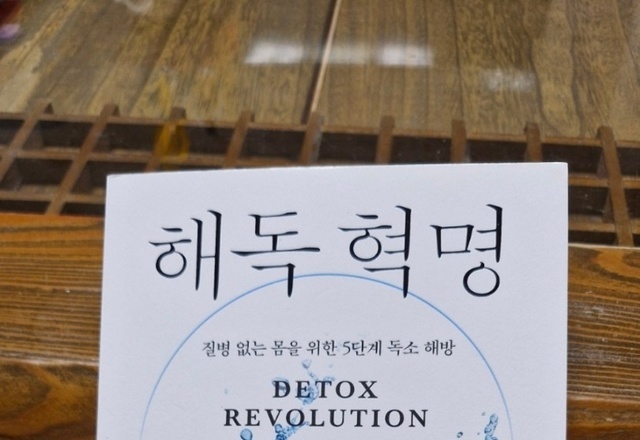 해독 혁명
질병 없는 몸을 위한 5단계 독소 해방
DETOX
REVOLUTION